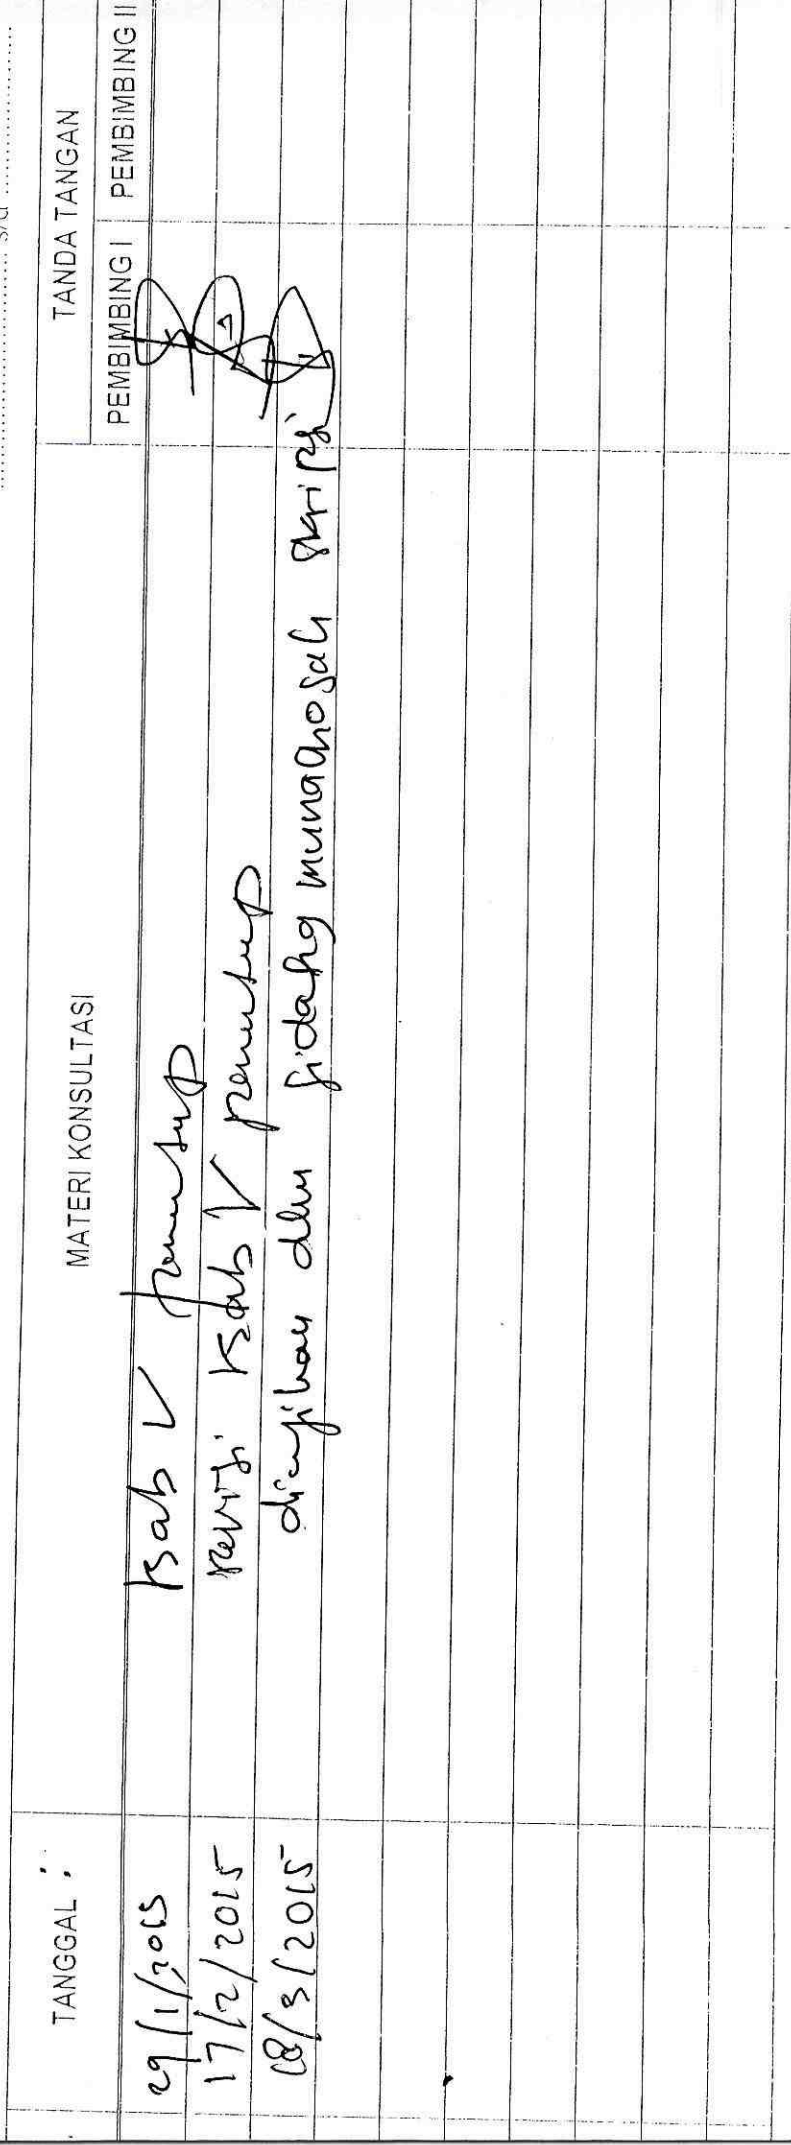 s/d
TANGGAL :
MATERI KONSULTASI
TANDA TANGAN
PEMBIMBING I
PEMBIMBING II
29/1/2015
Bab V penutup
17/2/2015
Revisi Bab V penutup
18/3/2015
diujikan dlm sidang munaqosah skripsi